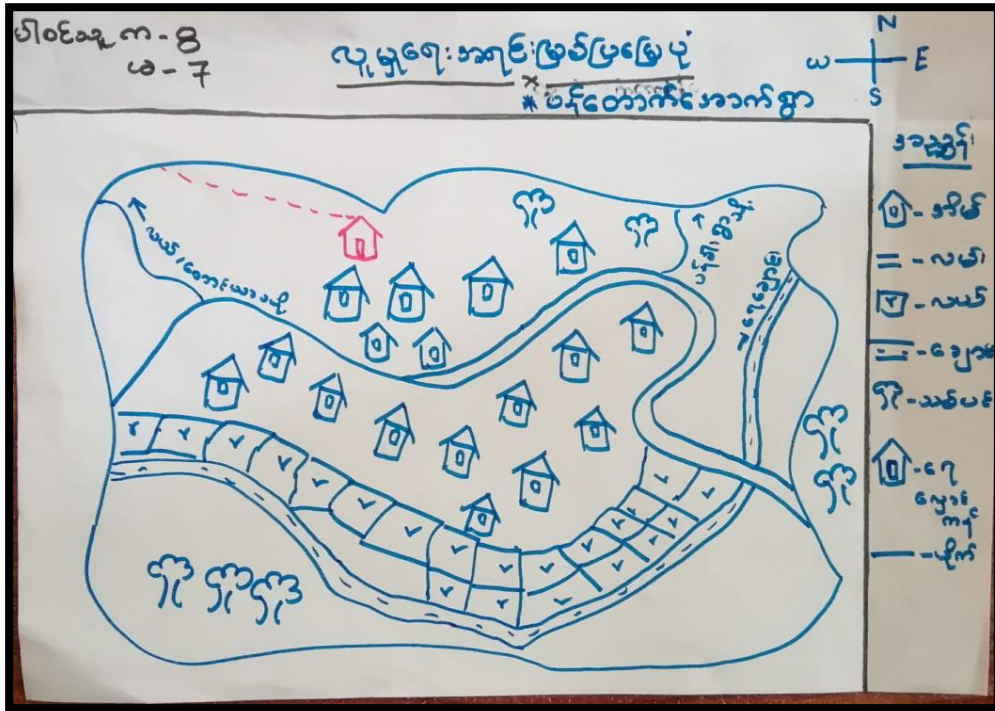 ပါဝင်သူ က - 8
ယ - 7
လူမှုရေးအရင်းအမြစ်ပြမြေပုံ
* ပန်တောက်အောက်ရွာ
N
ယ E
S
အညွှန်း
- အိမ်
- လမ်း
- လယ်
- ချောင်း
- သစ်ပင်
- ရေ
လှောင်
ကန်
- ပိုက်
လယ်၊တောင်ယာသို့
ရေချောင်း